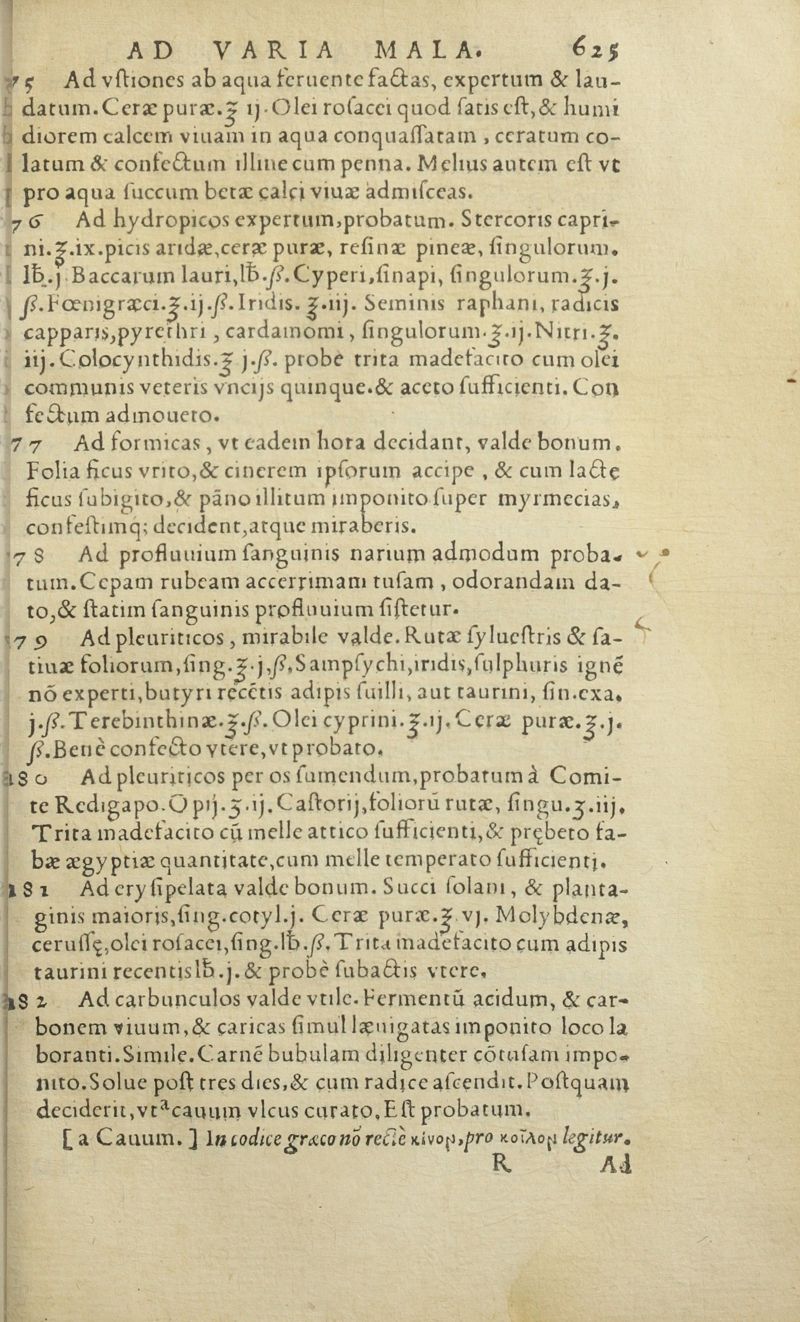 AD VARIA MALA. 625
75 Ad vſtiones ab aqua feruente factas, expertum & lau-
datum. Ceræ puræ.℥ ij. Olei roſacei quod ſatis eſt, & humi
diorem calcem viuam in aqua conquaſſatam, ceratum co-
latum & confectum illine cum penna. Melius autem eſt vt
pro aqua ſuccum betæ calci viuæ admiſceas.
76 Ad hydropicos expertum, probatum. Stercoris capri-
ni.℥.ix.picis aridæ, ceræ puræ, reſinæ pineæ, ſingulorum.
lb.j. Baccarum lauri, lb.ſ. Cyperi, ſinapi, ſingulorum.℥.j.
ſ. Fœnigræci.℥.ij.ſ. Iridis.℥.iij. Seminis raphani, radicis
capparis, pyrethri, cardamomi, ſingulorum.℥.ij. Nitri.℥.
iij. Colocynthidis.℥ j.ſ. probè trita madefacito cum olei
communis veteris vncijs quinque. & aceto ſufficienti. Con
fectum admoueto.
77 Ad formicas, vt eadem hora decidant, valde bonum.
Folia ficus vrito, & cinerem ipſorum accipe, & cum lacte
ficus ſubigito, & pāno illitum imponito ſuper myrmecias,
confeſtimq; decident, atque miraberis.
78 Ad profluuium ſanguinis narium admodum proba-
tum. Cepam rubeam accerrimam tuſam, odorandam da-
to, & ſtatim ſanguinis profluuium ſiſtetur.
79 Ad pleuriticos, mirabile valde. Rutæ ſylueſtris & ſa-
tiuæ foliorum, ſing.℥.j.ſ. Sampſychi, iridis, ſulphuris ignē
nō experti, butyri recētis adipis ſuilli, aut taurini, ſin. exa.
j.ſ. Terebinthinæ.℥.ſ. Olei cyprini.℥.ij. Ceræ puræ.℥.j.
ſ. Benè confecto vtere, vt probato.
180 Ad pleuriticos per os ſumendum, probatum à Comi-
te Redigapo. Opij.ʒ.ij. Caſtorij, foliorū rutæ, ſingu.ʒ.iij.
Trita madefacito cū melle attico ſufficienti, & prębeto fa-
bæ ægyptiæ quantitate, cum melle temperato ſufficienti.
181 Ad eryſipelata valde bonum. Succi ſolani, & planta-
ginis maioris, ſing. cotyl.j. Ceræ puræ.℥.vj. Molybdenæ,
ceruſſę, olei roſacei, ſing.lb.ſ. Trita madefacito cum adipis
taurini recentis lb.j. & probè ſubactis vtere.
182 Ad carbunculos valde vtile. Fermentū acidum, & car-
bonem viuum, & caricas ſimul læuigatas imponito loco la
boranti. Simile. Carnē bubulam diligenter cōtuſam impo-
nito. Solue poſt tres dies, & cum radice aſcendit. Poſtquam
deciderit, vt ᵃcauum vlcus curato, Eſt probatum.
[ a Cauum. ] In codice græco nō rectè κῖνον, pro κοῖλον legitur.
R Ad